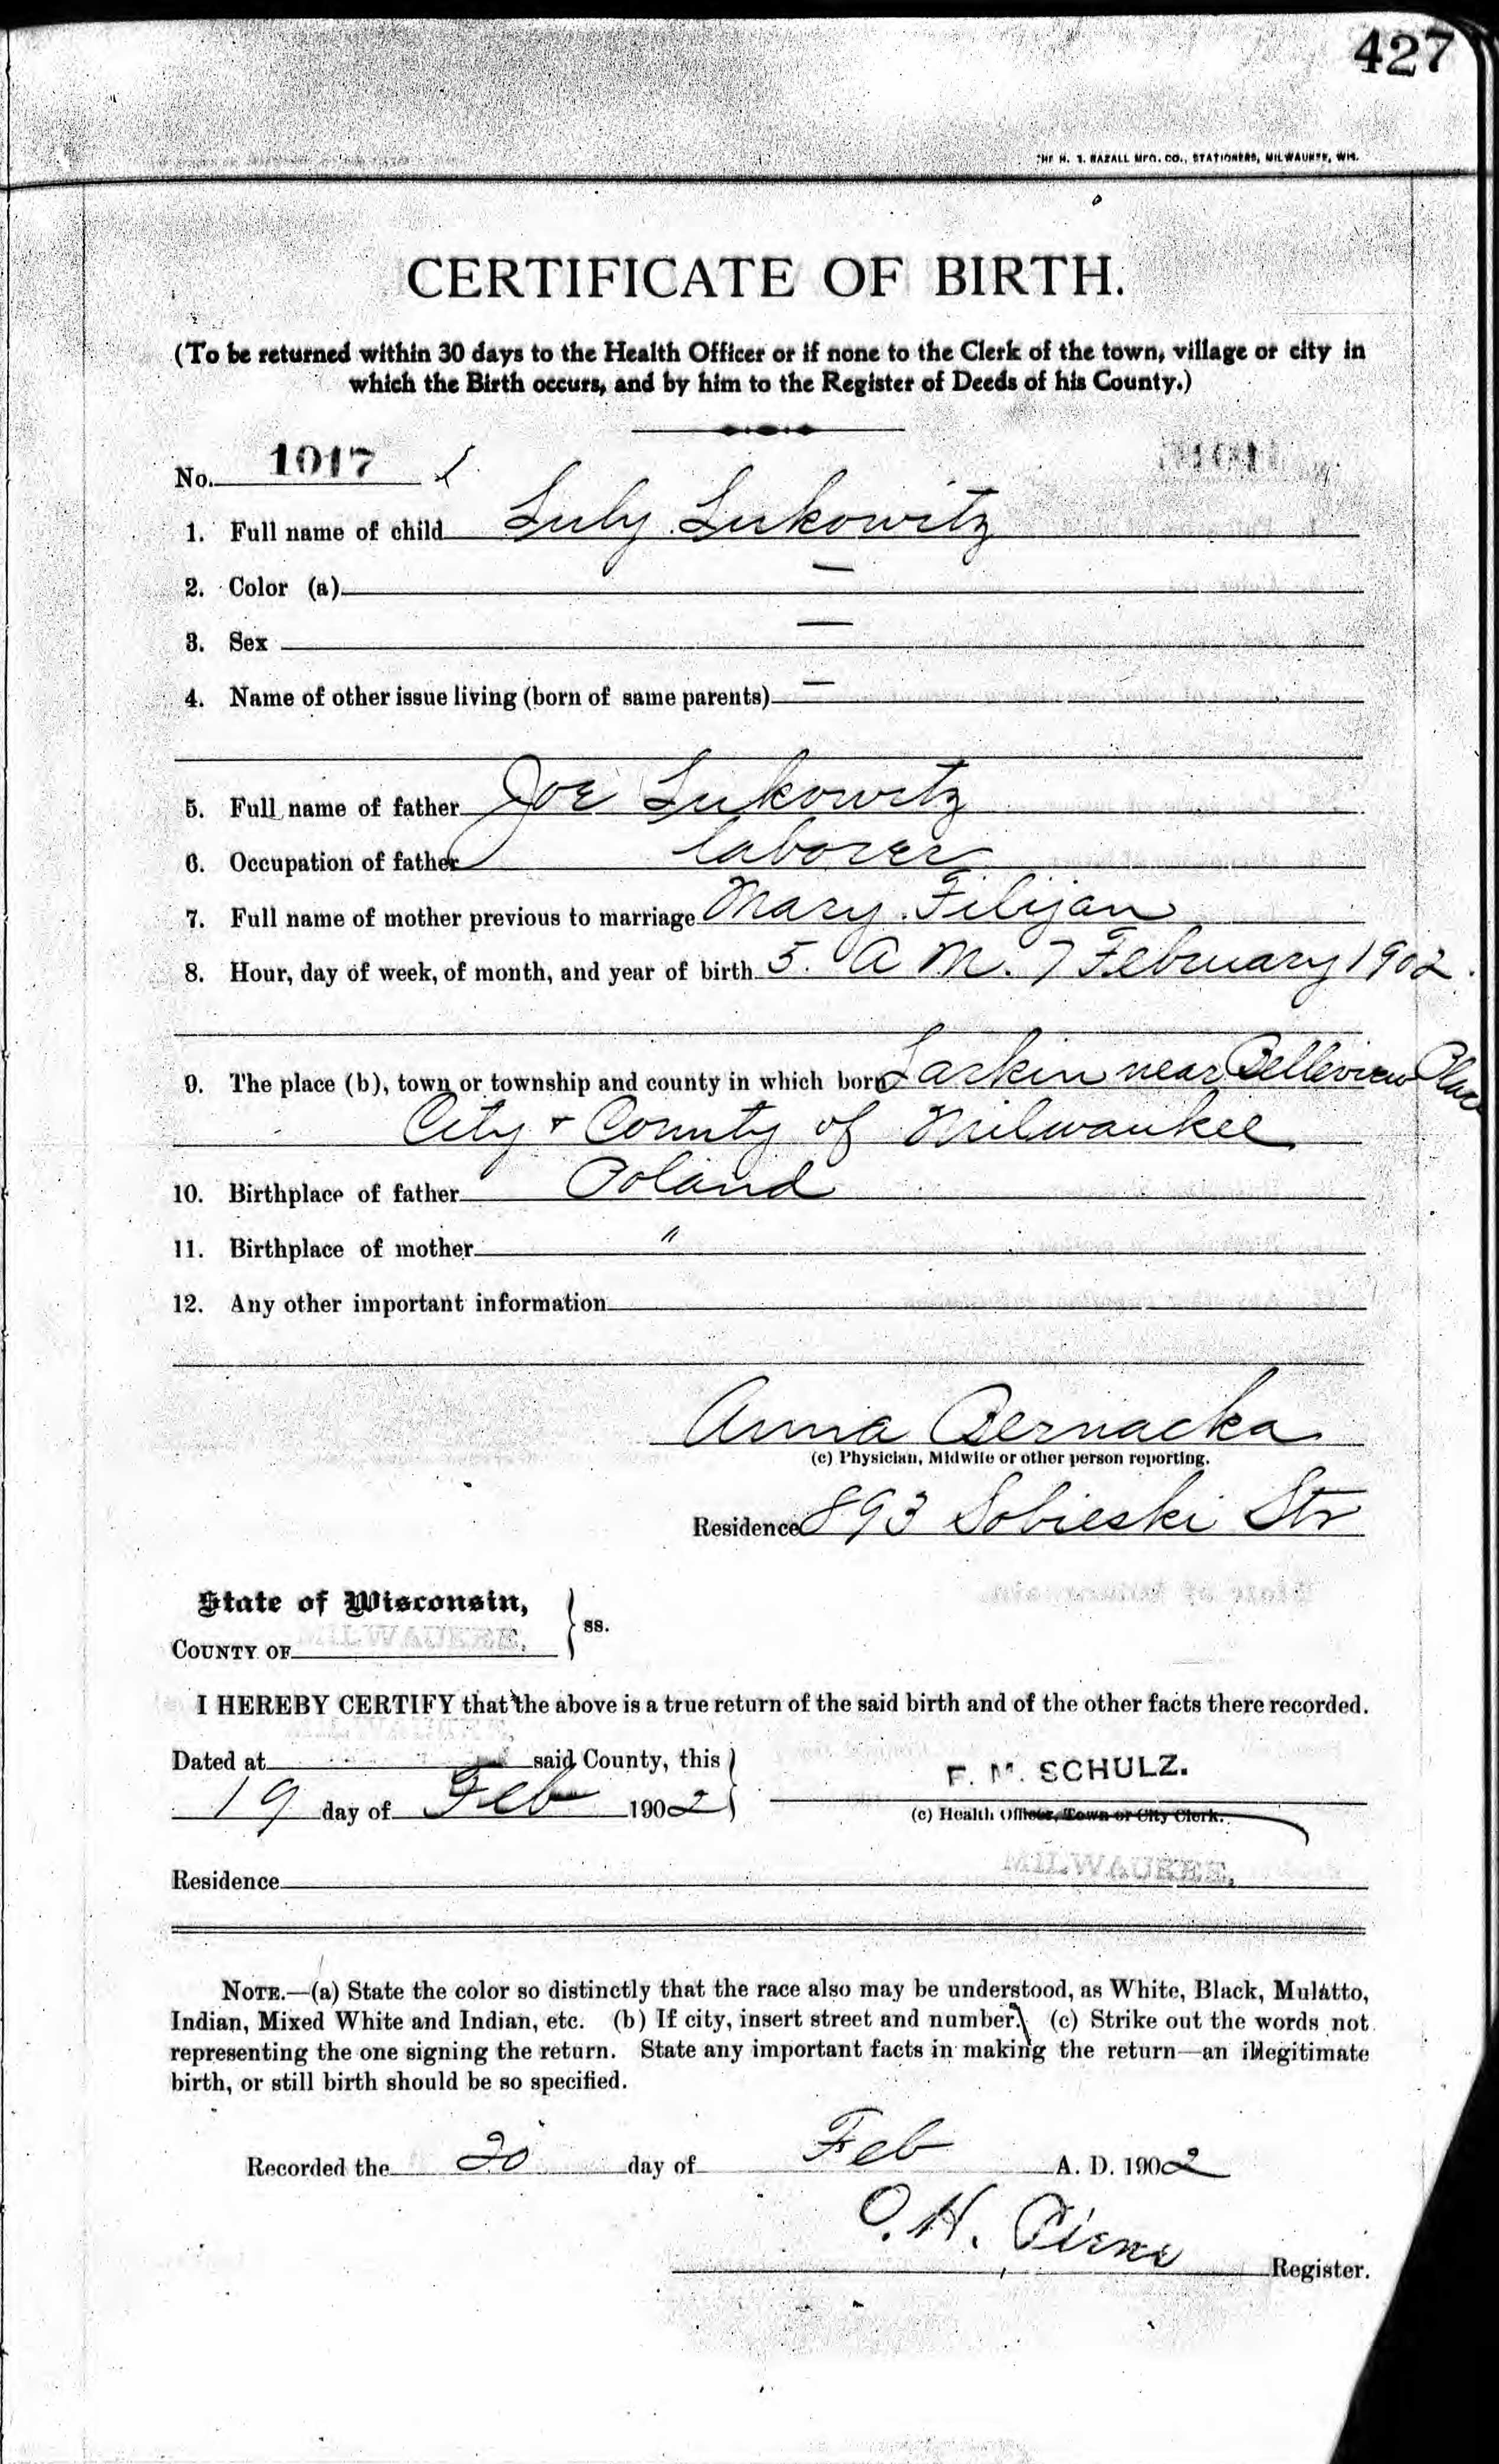 427
THE H. S. RAZALL MFG. CO., STATIONERS, MILWAUKEE, WIS.
CERTIFICATE OF BIRTH.
(To be returned within 30 days to the Health Officer or if none to the Clerk of the town, village or city in
which the Birth occurs, and by him to the Register of Deeds of his County.)
No. 1017
1. Full name of child Luly Lukowitz
2. Color (a) —
3. Sex —
4. Name of other issue living (born of same parents) —
5. Full name of father Joe Lukowitz
6. Occupation of father laborer
7. Full name of mother previous to marriage Mary Filijan
8. Hour, day of week, of month, and year of birth 5. A M. 7 February 1902.
9. The place (b), town or township and county in which born Larkin near Belleview Place
City + County of Milwaukee
10. Birthplace of father Poland
11. Birthplace of mother "
12. Any other important information
Anna Bernacka
(c) Physician, Midwife or other person reporting.
Residence 893 Sobieski Str
State of Wisconsin,
COUNTY OF MILWAUKEE. } ss.
I HEREBY CERTIFY that the above is a true return of the said birth and of the other facts there recorded.
Dated at said County, this
19 day of Feb 1902 } F. M. SCHULZ.
(c) Health Officer, Town or City Clerk.
Residence MILWAUKEE.
NOTE.—(a) State the color so distinctly that the race also may be understood, as White, Black, Mulatto,
Indian, Mixed White and Indian, etc. (b) If city, insert street and number. (c) Strike out the words not
representing the one signing the return. State any important facts in making the return—an illegitimate
birth, or still birth should be so specified.
Recorded the 20 day of Feb A. D. 1902
O. H. Register.